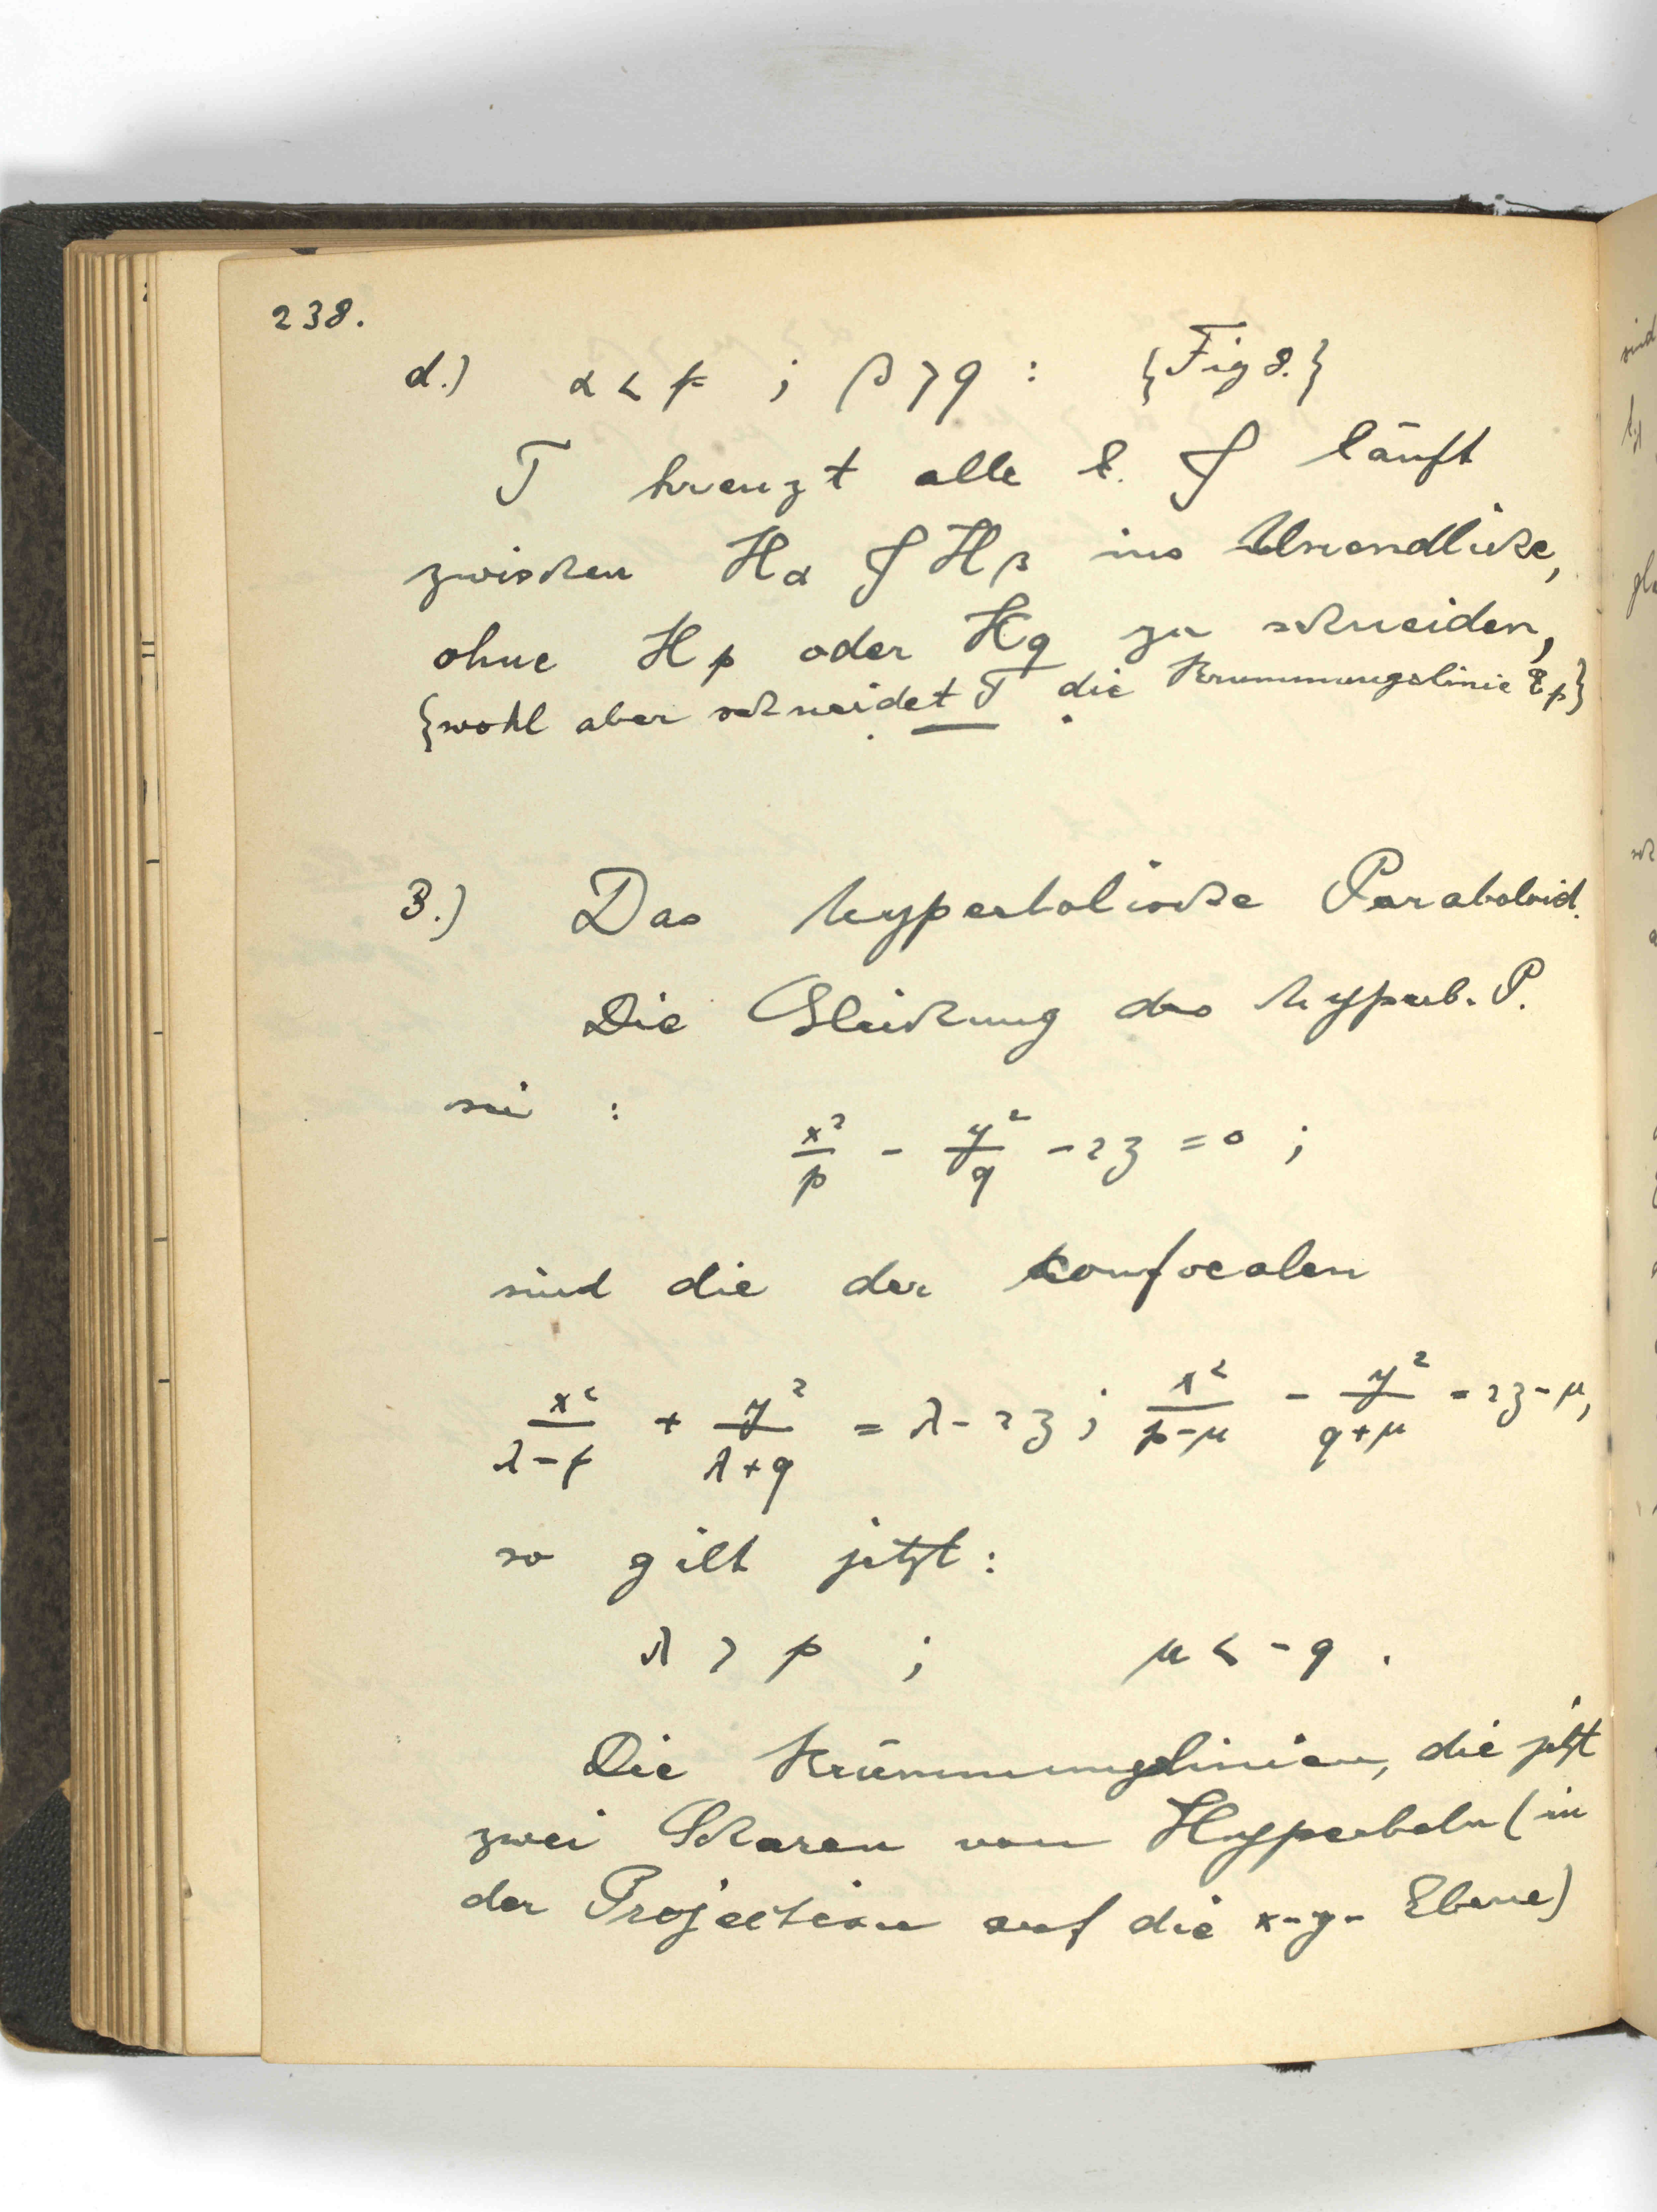 238.
d.) α < p ; β > q : {Fig 8.}
T kreuzt alle E. & läuft
zwischen Hα & Hβ ins Unendliche,
ohne Hp oder Hq zu schneiden,
{wohl aber schneidet T die Krümmungslinie Ep}
3.) Das hyperbolische Paraboloid.
Die Gleichung des hyperb. P.
sei :
x²/p - y²/q - 2z = 0 ;
sind die der confocalen
x²/(λ-p) + y²/(λ+q) = λ - 2z ; x²/(p-μ) - y²/(q+μ) = 2z - μ,
so gilt jetzt :
λ > p ; μ < -q .
Die Krümmungslinien, die jetzt
zwei Scharen von Hyperbeln (in
der Projection auf die x-y- Ebene)